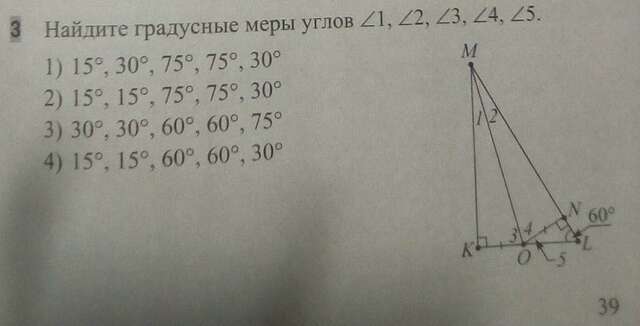 3 Найдите градусные меры углов ∠1, ∠2, ∠3, ∠4, ∠5.
1) 15°, 30°, 75°, 75°, 30°
2) 15°, 15°, 75°, 75°, 30°
3) 30°, 30°, 60°, 60°, 75°
4) 15°, 15°, 60°, 60°, 30°
M
1 2
N
60°
3 4
K
O
5
L
39